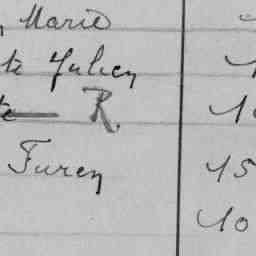 , Marie
te Juliey
te R.
Furey 15
10